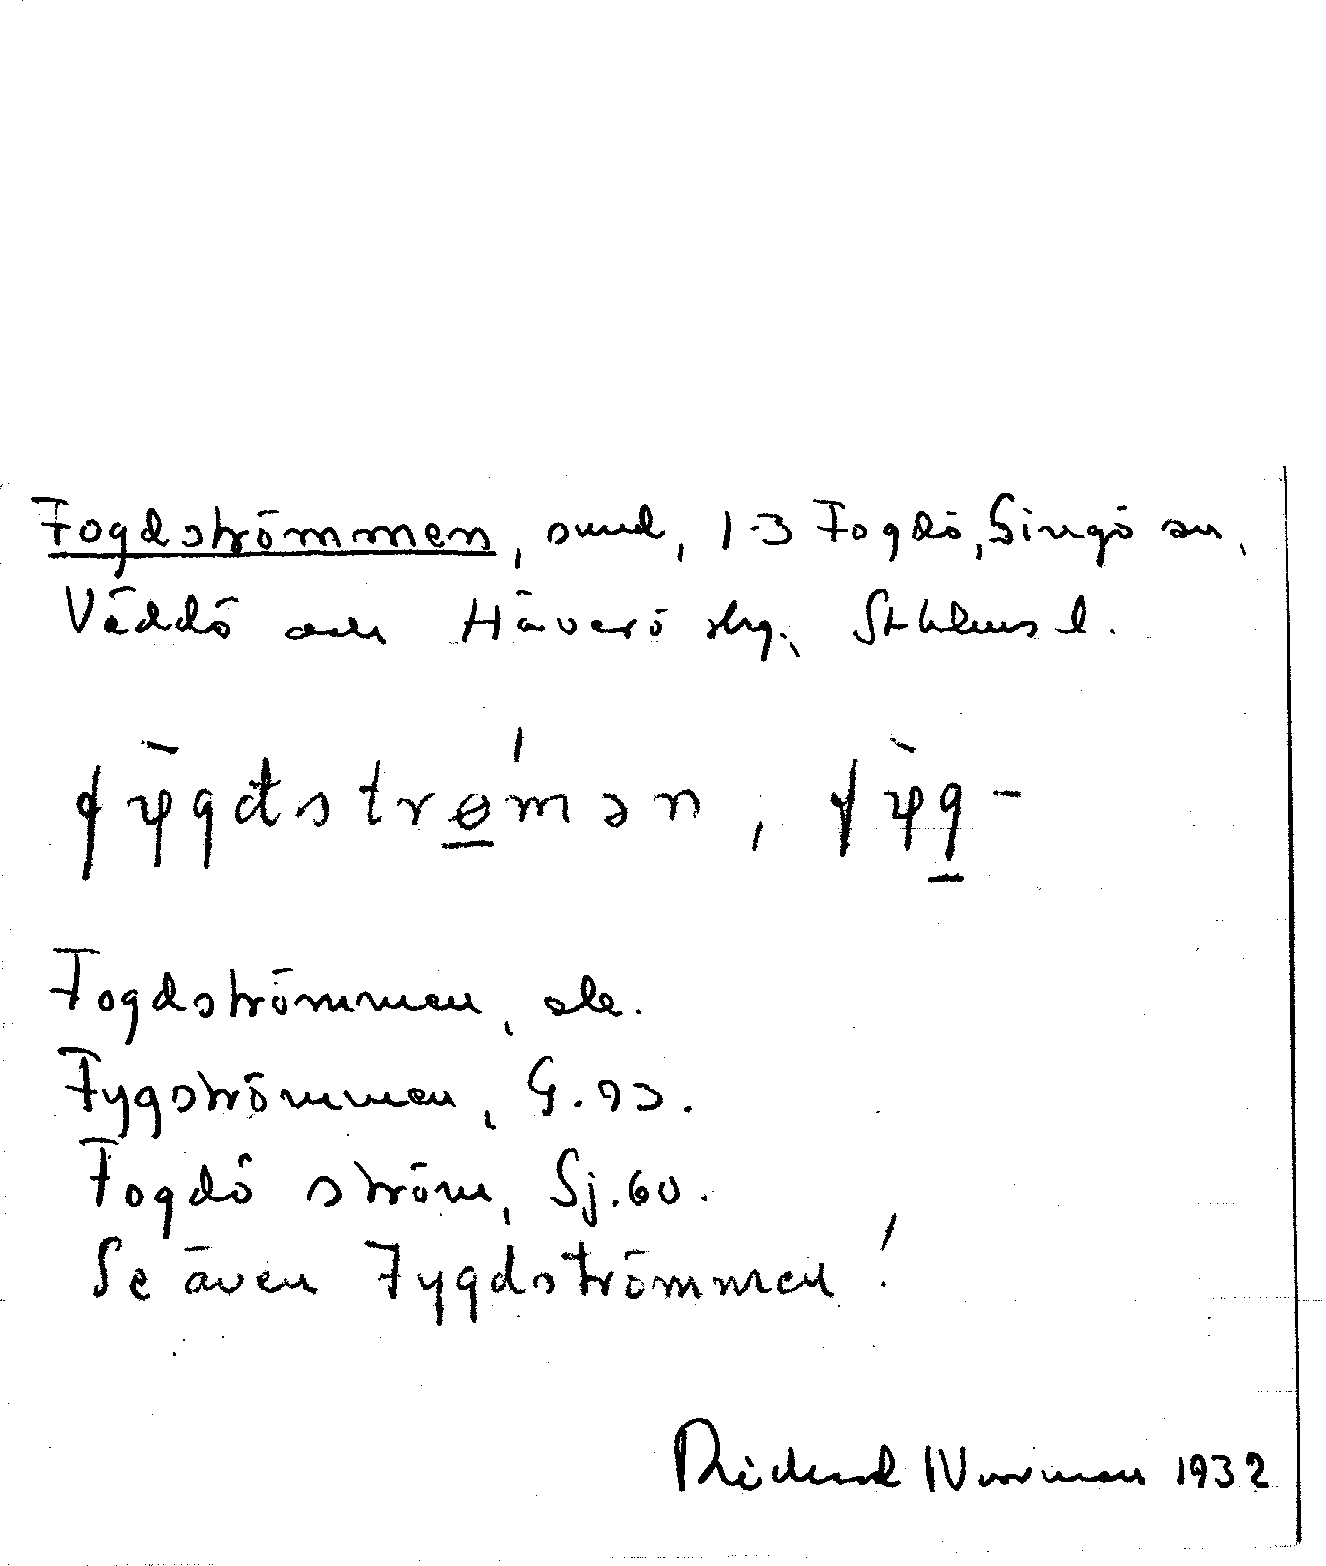 Fogdströmmen, sund, 1-3 Fogdö, Singö sn,
Väddö och Häverö skg., Sthlms l.
Fogdströmmen, ek.
Fygströmmen, G. 93.
Fogdö ström, Sj. 60.
Se även Fygdströmmen!
Rickard Norrman 1932